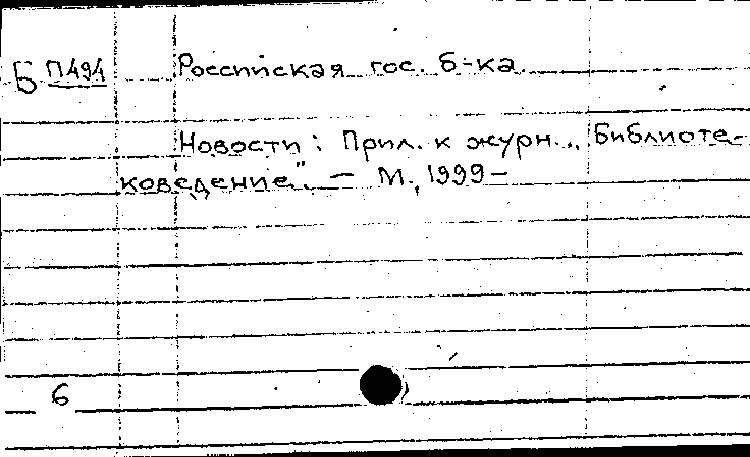 Б П494 Российская гос. б-ка
Новости : Прил. к журн. „Библиоте-
коведение". — М., 1999 –
6